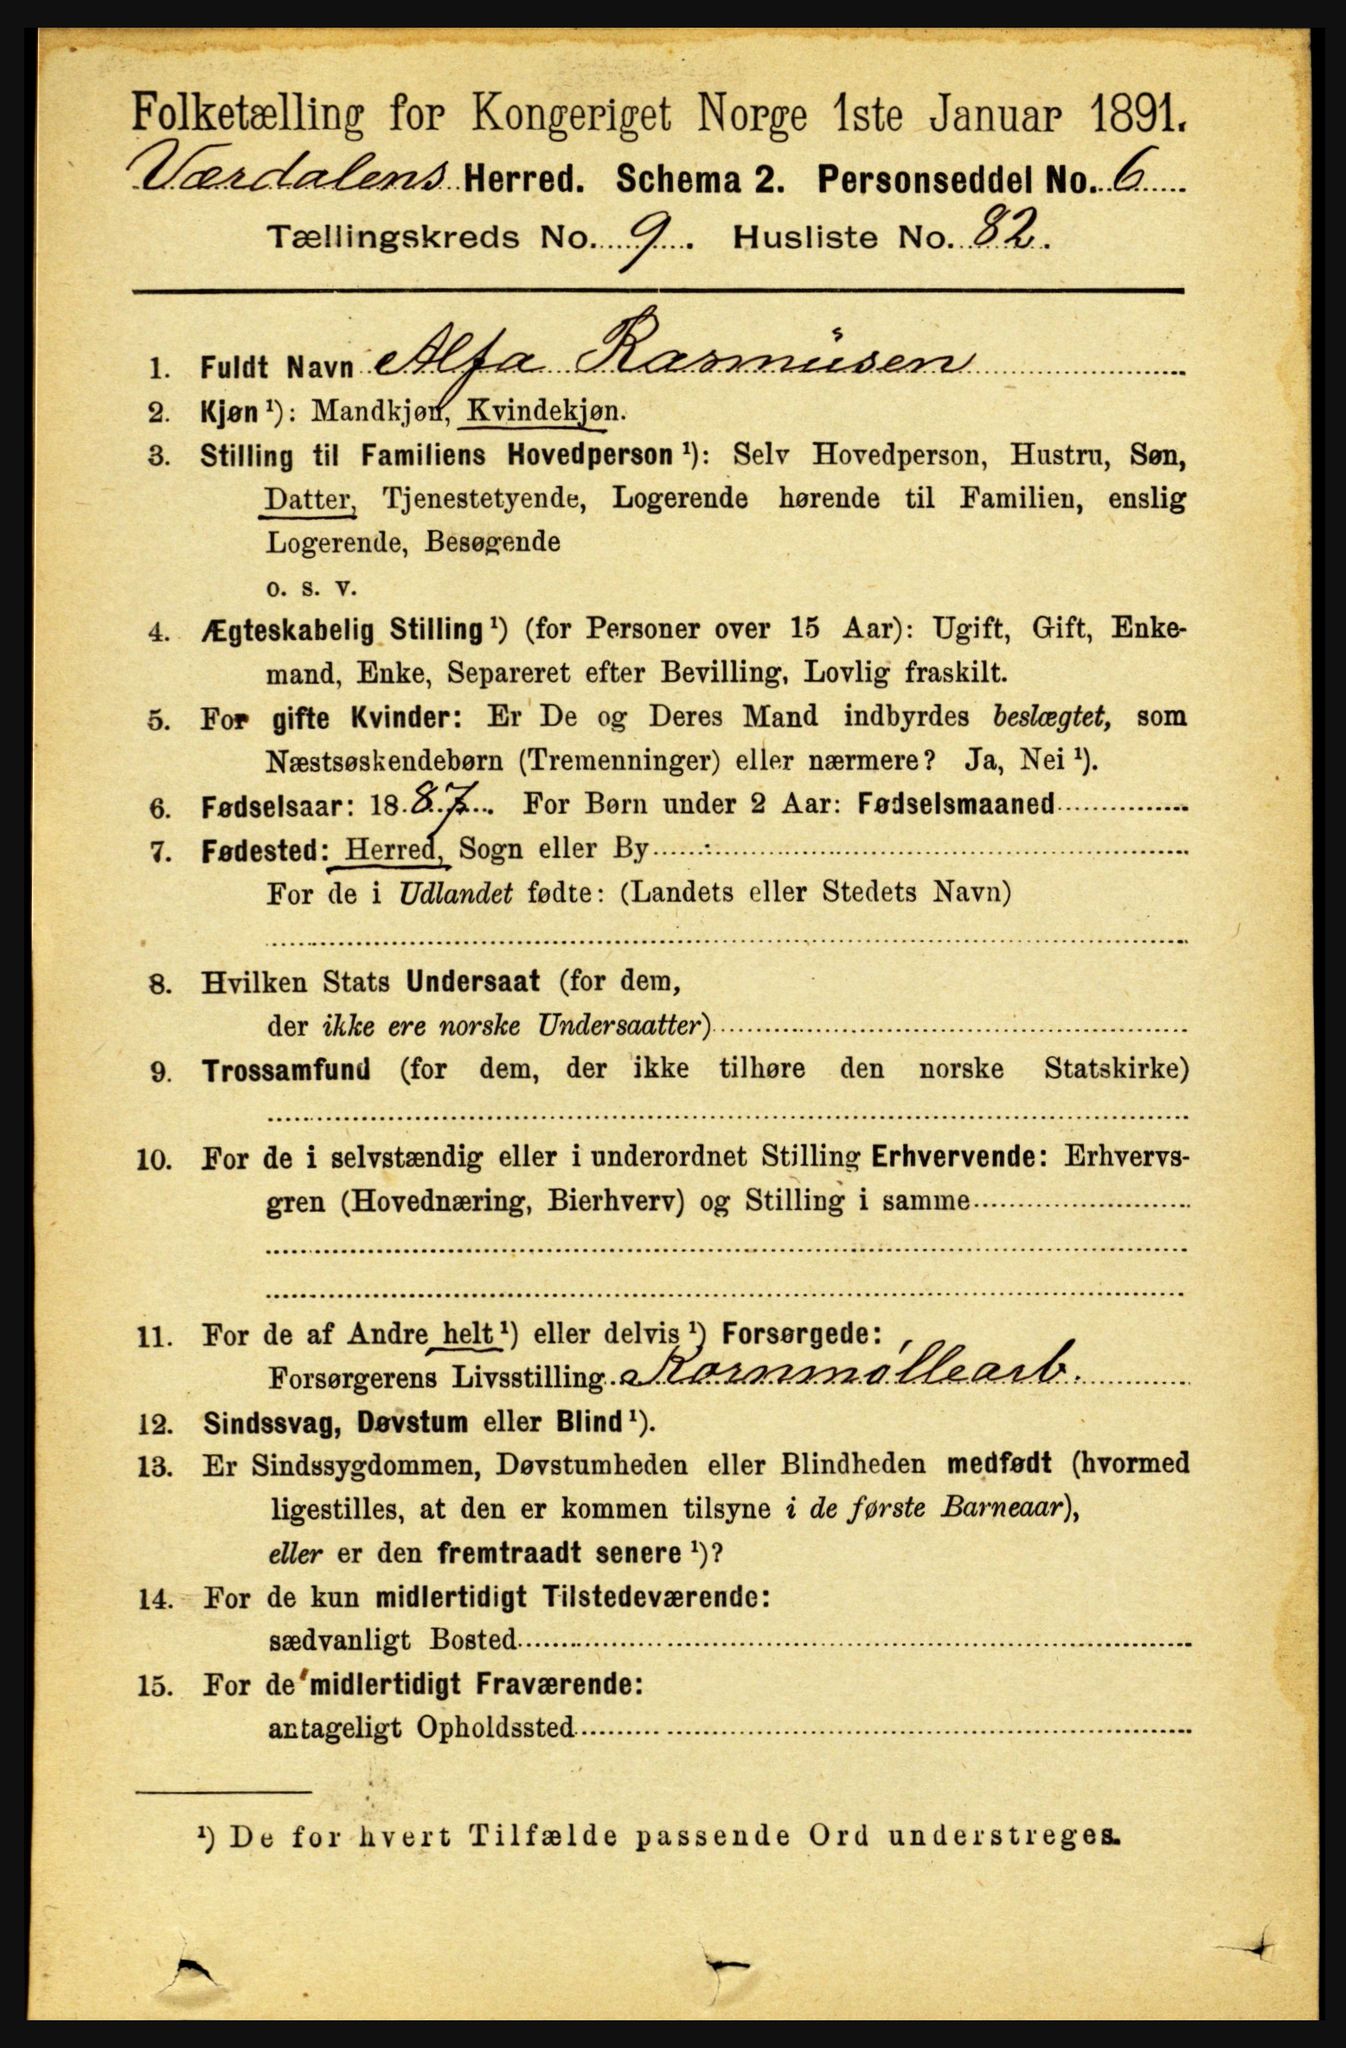 Folketælling for Kongeriget Norge 1ste Januar 1891.
Værdalens Herred. Schema 2. Personseddel No. 6
Tællingskreds No. 9. Husliste No. 82.
1. Fuldt Navn Alfa Rasmusen
2. Kjøn ¹): Mandkjøn, Kvindekjøn.
3. Stilling til Familiens Hovedperson ¹): Selv Hovedperson, Hustru, Søn,
Datter, Tjenestetyende, Logerende hørende til Familien, enslig
Logerende, Besøgende
o. s. v.
4. Ægteskabelig Stilling ¹) (for Personer over 15 Aar): Ugift, Gift, Enke-
mand, Enke, Separeret efter Bevilling, Lovlig fraskilt.
5. For gifte Kvinder: Er De og Deres Mand indbyrdes beslægtet, som
Næstsøskendebørn (Tremenninger) eller nærmere? Ja, Nei ¹).
6. Fødselsaar: 1887. For Børn under 2 Aar: Fødselsmaaned
7. Fødested: Herred, Sogn eller By
For de i Udlandet fødte: (Landets eller Stedets Navn)
8. Hvilken Stats Undersaat (for dem,
der ikke ere norske Undersaatter)
9. Trossamfund (for dem, der ikke tilhøre den norske Statskirke)
10. For de i selvstændig eller i underordnet Stilling Erhvervende: Erhvervs-
gren (Hovednæring, Bierhverv) og Stilling i samme
11. For de af Andre helt ¹) eller delvis ¹) Forsørgede:
Forsørgerens Livsstilling Kornmøllearb.
12. Sindssvag, Døvstum eller Blind ¹).
13. Er Sindssygdommen, Døvstumheden eller Blindheden medfødt (hvormed
ligestilles, at den er kommen tilsyne i de første Barneaar),
eller er den fremtraadt senere ¹)?
14. For de kun midlertidigt Tilstedeværende:
sædvanligt Bosted
15. For de midlertidigt Fraværende:
antageligt Opholdssted
¹) De for hvert Tilfælde passende Ord understreges.